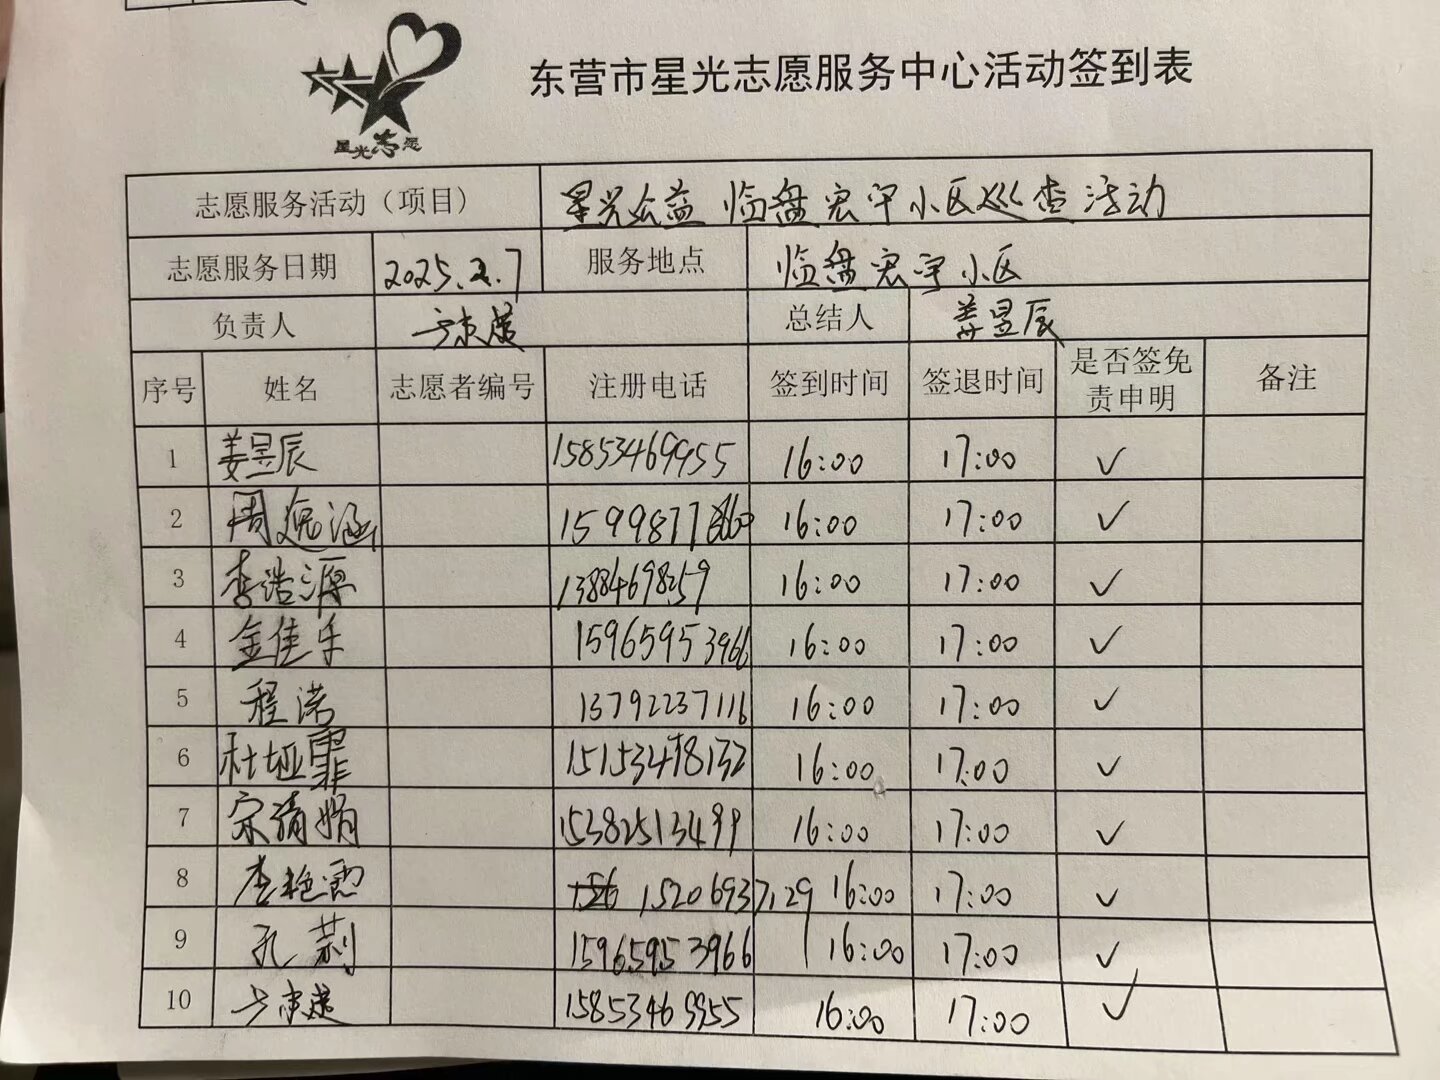 星光志愿
东营市星光志愿服务中心活动签到表
志愿服务活动（项目） 星光公益 临盘宏宇小区巡查活动
志愿服务日期 2025.2.7 服务地点 临盘宏宇小区
负责人 总结人 姜昱辰
序号 姓名 志愿者编号 注册电话 签到时间 签退时间 是否签免责申明 备注
1 姜昱辰 15853469955 16:00 17:00 ✓
2 周逸涵 16:00 17:00 ✓
3 李浩源 13884698259 16:00 17:00 ✓
4 金佳乐 15965953966 16:00 17:00 ✓
5 程诺 13792237116 16:00 17:00 ✓
6 杜垭霏 15153478132 16:00 17:00 ✓
7 宗清娟 15382513499 16:00 17:00 ✓
8 李艳霞 15206937129 16:00 17:00 ✓
9 孔莉 15965953966 16:00 17:00 ✓
10 15853469955 16:00 17:00 ✓